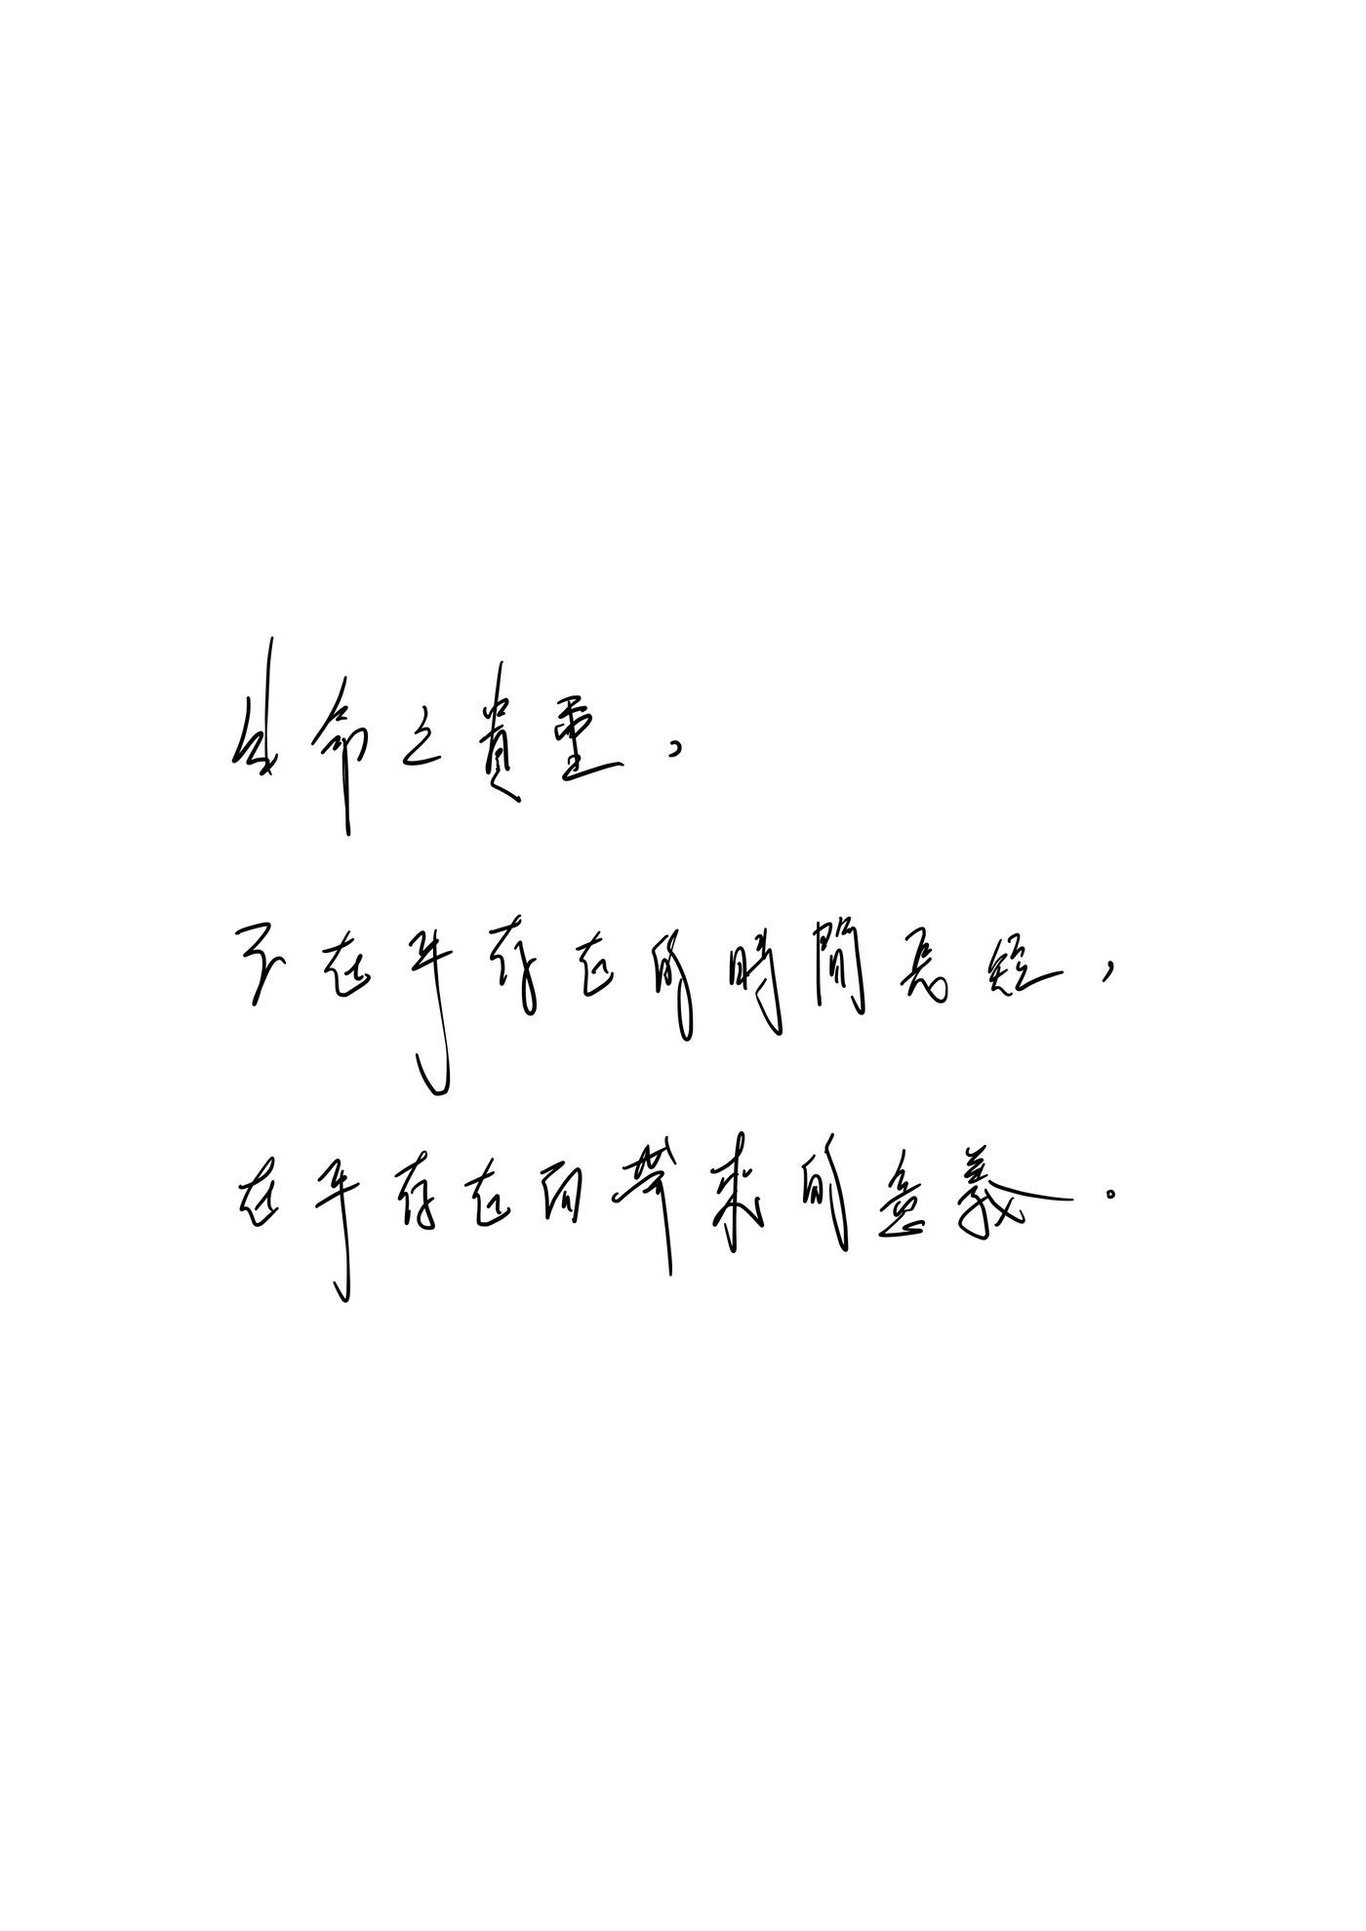 生命之貴重，
不在乎存在的時間長短，
在乎存在而帶來的意義。